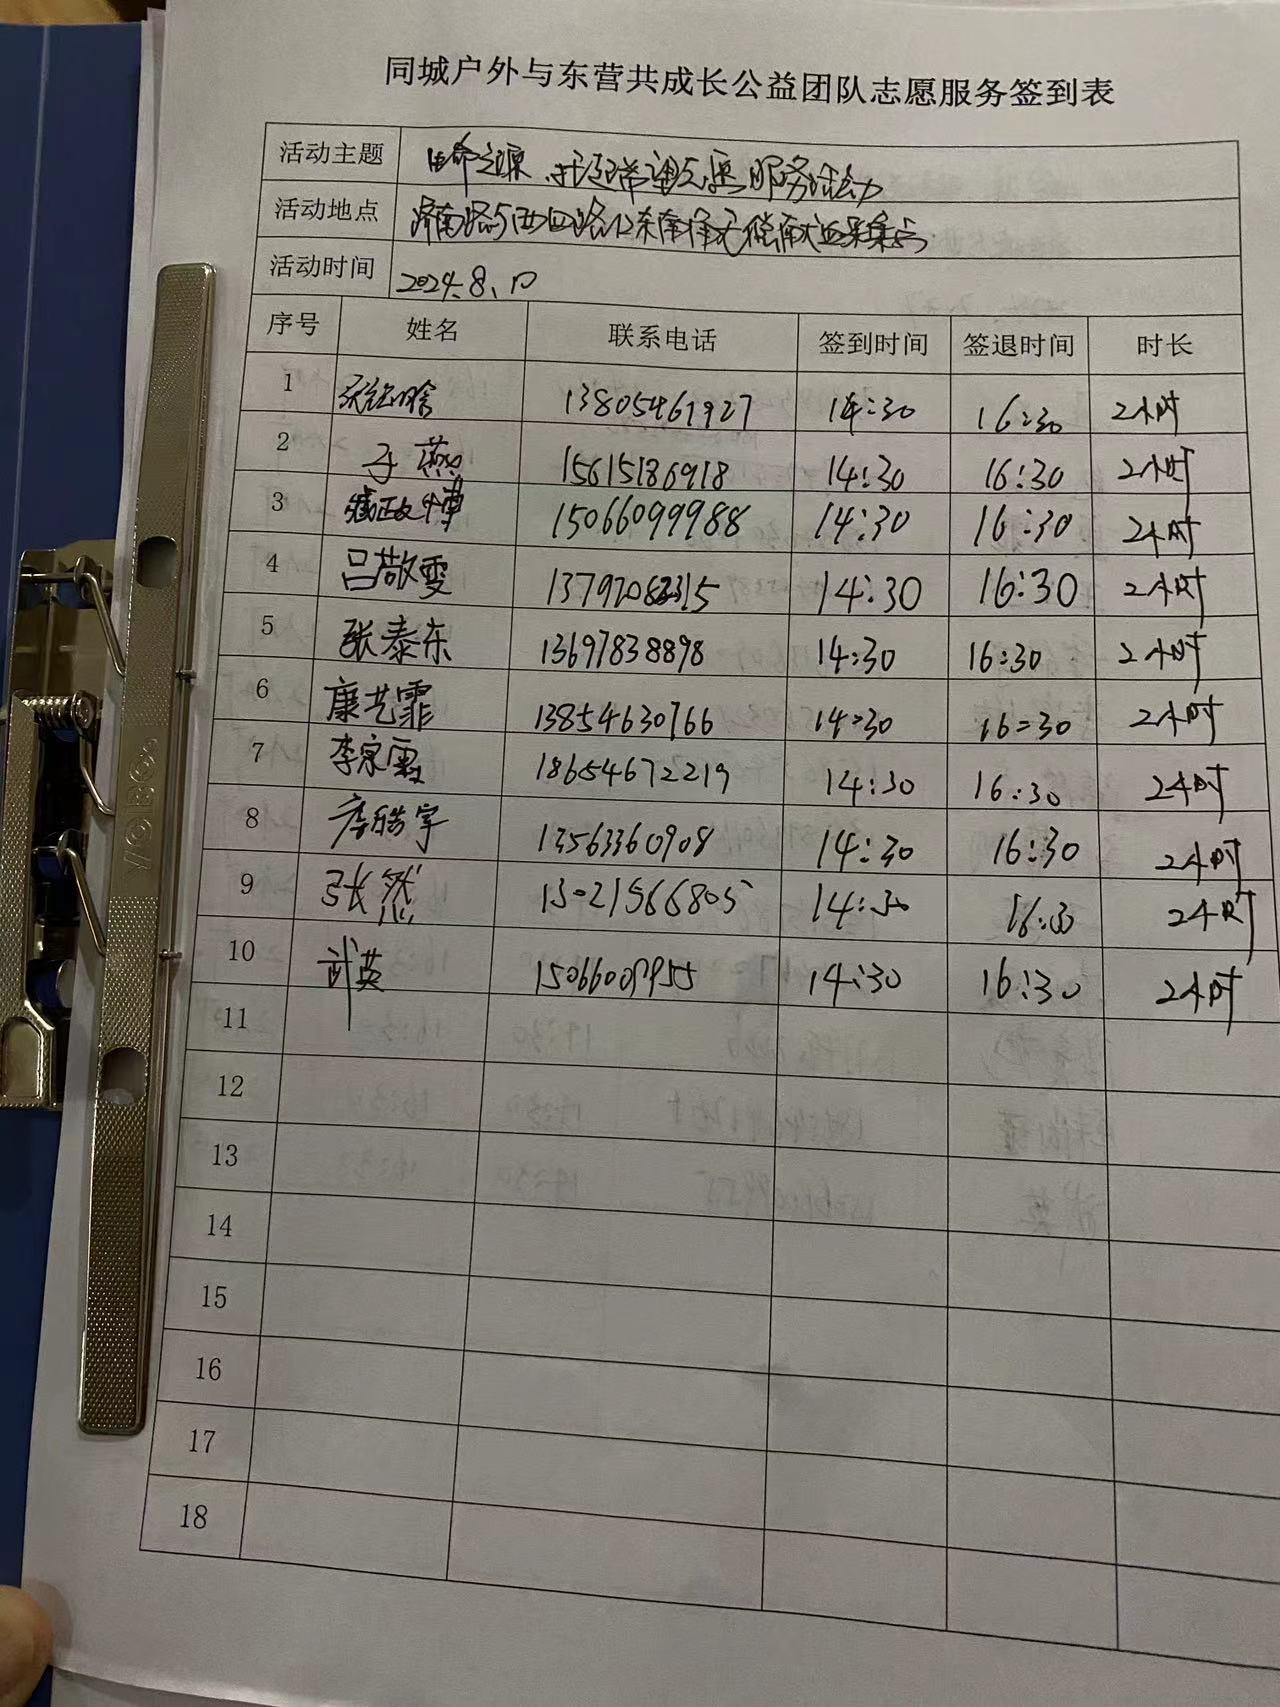 同城户外与东营共成长公益团队志愿服务签到表
活动主题 生命之源 托起希望志愿服务活动
活动地点 济南路与西四路口东南择无偿献血采集点
活动时间 2024.8.17
序号 姓名 联系电话 签到时间 签退时间 时长
1 13805461927 14:30 16:30 2小时
2 于燕 15615186918 14:30 16:30 2小时
3 15066099988 14:30 16:30 2小时
4 吕敬雯 14:30 16:30 2小时
5 张泰东 13697838898 14:30 16:30 2小时
6 康艺霏 13854630766 14:30 16:30 2小时
7 李家霞 18654672219 14:30 16:30 2小时
8 李皓宇 13563360908 14:30 16:30 2小时
9 张然 13021566805 14:30 16:30 2小时
10 武英 15066009955 14:30 16:30 2小时
11
12
13
14
15
16
17
18
YOBO